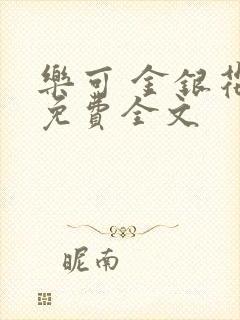 樂可 金銀花
免費全文
昵南